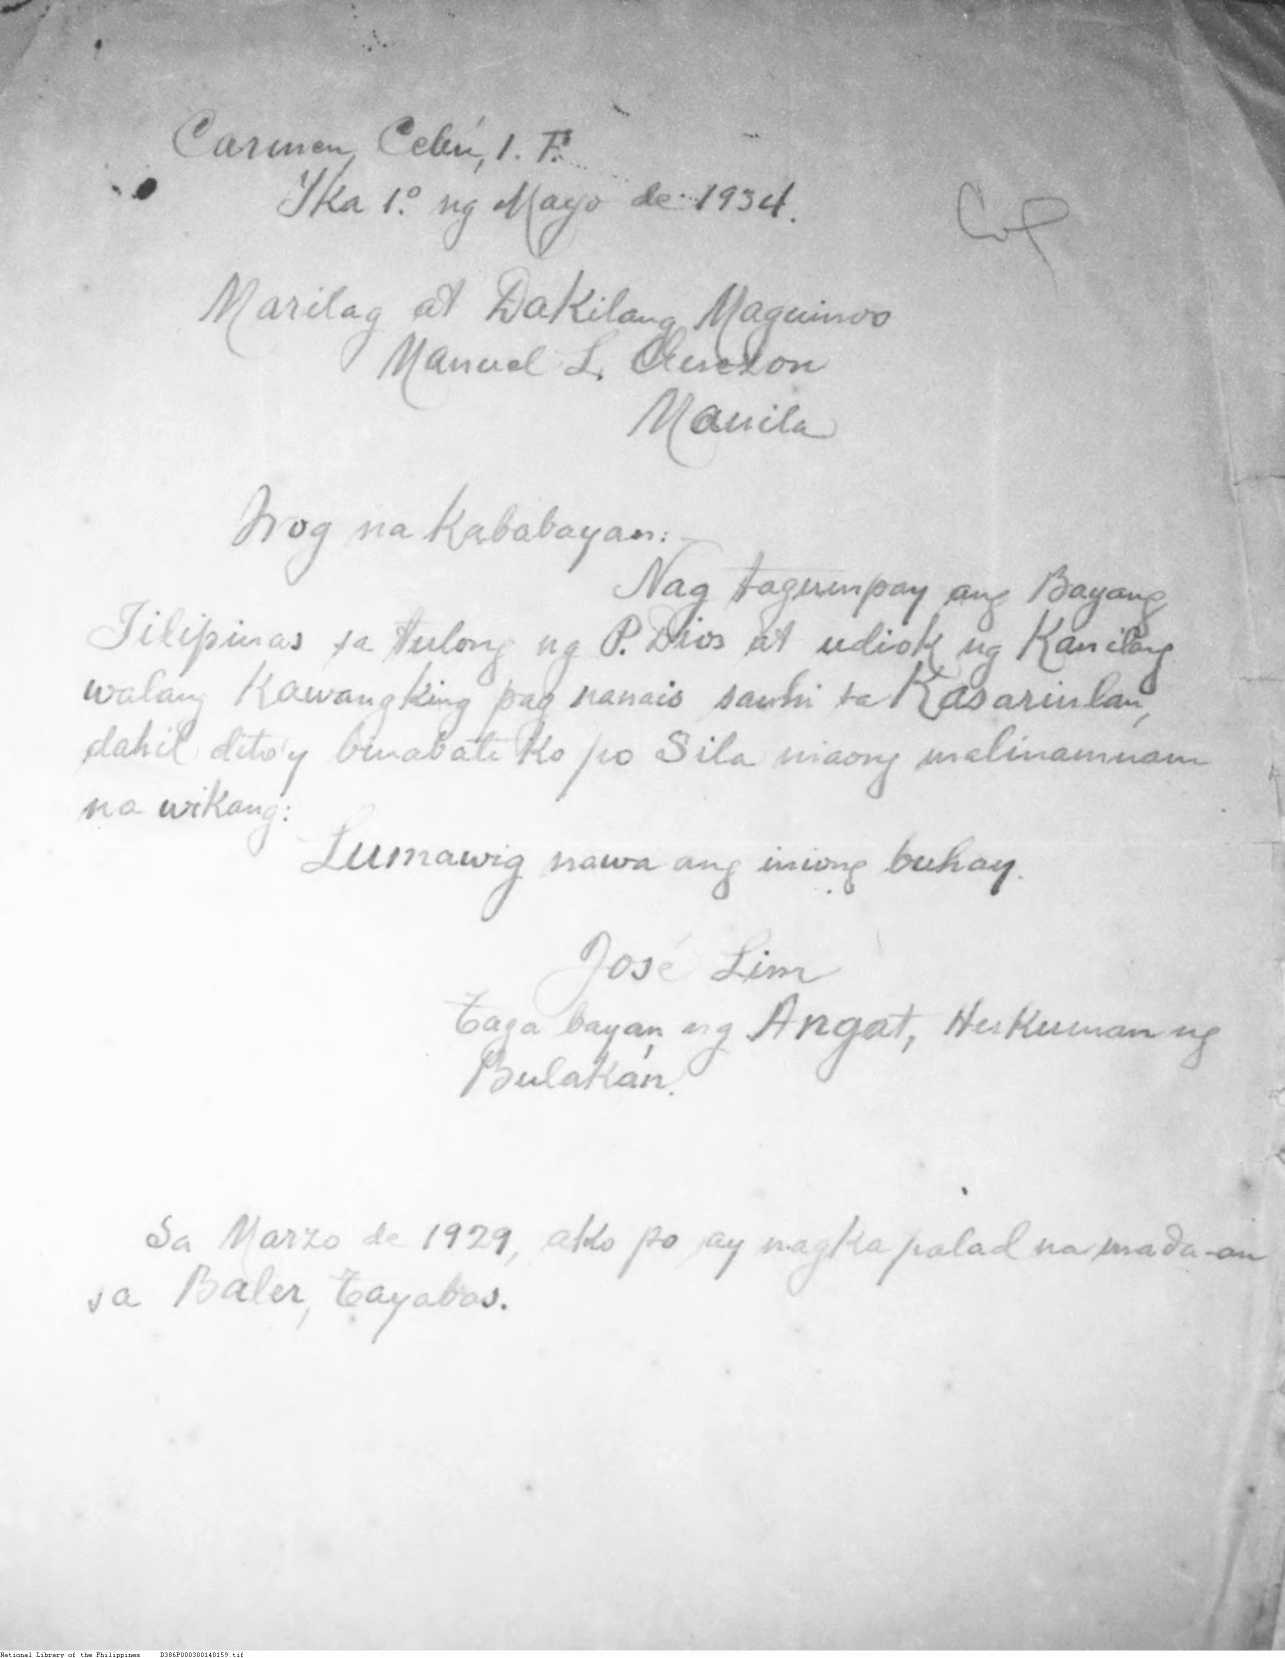 Carmen, Cebú, I. F.
Ika 1.º ng Mayo de 1934.
Marilag at Dakilang Maguinoo
Manuel L. Quezon
Manila
Irog na Kababayan:
Nag tagumpay ang Bayang
Filipinas sa tulong ng P. Dios at udiok ng Kanilang
walang Kawangking pag nanais sanhi sa Kasarinlan,
dahil dito'y binabati Ko po Sila niaong malinamnam
na wikang:
Lumawig nawa ang iniong buhay.
José Lim
Taga bayan ng Angat, Hukuman ng
Bulakán.
Sa Marzo de 1929, ako po ay nagka palad na mada-an
sa Baler, Tayabas.
National Library of the Philippines D386P000300140159.tif